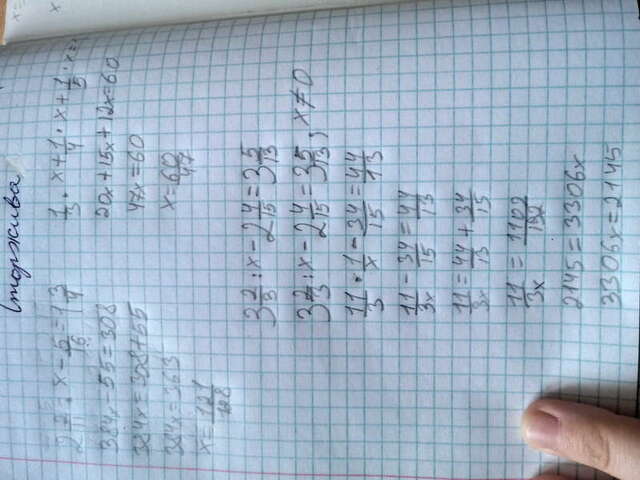 Сторжива
2 2/11 · x - 5/16 = 1 3/4
384x - 55 = 308
384x = 308 + 55
384x = 363
x = 121/128
1/3 · x + 1/4 · x + 1/5 · x =
20x + 15x + 12x = 60
47x = 60
x = 60/47
3 2/3 : x - 2 4/15 = 3 5/13
3 2/3 : x - 2 4/15 = 3 5/13, x ≠ 0
11/3 · 1/x - 34/15 = 44/13
11/3x - 34/15 = 44/13
11/3x = 44/13 + 34/15
11/3x = 1102/192
2145 = 3306x
3306x = 2145